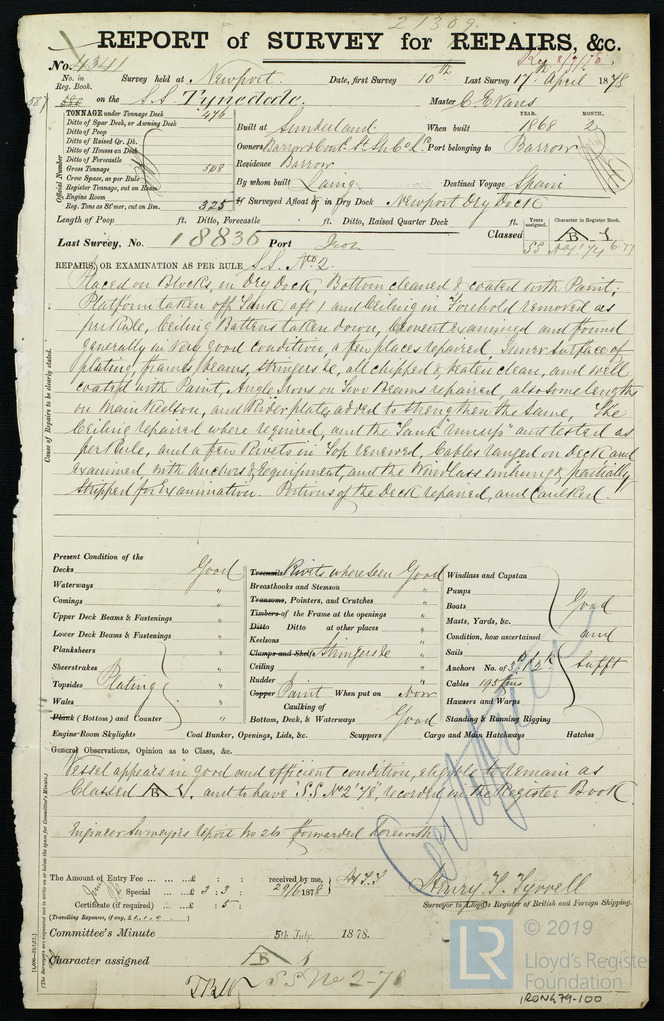 21309
REPORT of SURVEY for REPAIRS, &c.
No. 4341
No. in Reg. Book. Survey held at Newport. Date, first Survey 10th Last Survey 17th April 1878
587 on the S.S. Tynedale. Master C. Evans
TONNAGE under Tonnage Deck 476
Ditto of Spar Deck, or Awning Deck
Ditto of Poop
Ditto of Raised Qr. Dk.
Ditto of Houses on Deck
Ditto of Forecastle
Gross Tonnage 508
Crew Space, as per Rule
Register Tonnage, cut on Beam
Engine Room
Reg. Tons as St'mer, cut on Bm. 325
Official Number
Built at Sunderland When built YEAR. 1868 MONTH. 2
Owners Barrow & Cont. St. Sh. Co. Ld. Port belonging to Barrow
Residence Barrow
By whom built Laing Destined Voyage Spain
If Surveyed Afloat or in Dry Dock Newport Dry Dock
Length of Poop ft. Ditto, Forecastle ft. Ditto, Raised Quarter Deck ft.
Classed Years assigned. Character in Register Book.
Last Survey, No. 18836 Port Iron
REPAIRS, OR EXAMINATION AS PER RULE S.S. No. 2.
Cause of Repairs to be clearly stated.
Placed on Blocks, in Dry Dock, Bottom cleaned & coated with Paint;
Platform taken off Tank aft, and Ceiling in Forehold removed as
per Rule, Ceiling Battens taken down, Cement examined and found
generally in very good condition, a few places repaired, Inner surface of
plating, frames, beams, stringers &c, all chipped & beaten clean, and well
coated with Paint, Angle Irons on Two Beams repaired, also some lengths
on Main Keelson, and Rider plate added to strengthen the same, The
Ceiling repaired where required, and the "Tank run up" and tested as
per Rule, and a few Rivets in Top renewed, Cables ranged on Deck and
examined with Anchors & Equipment, and the Windlass unhung & partially
stripped for Examination. Portions of the Deck repaired, and Caulked.
Present Condition of the
Decks Good
Waterways "
Comings "
Upper Deck Beams & Fastenings "
Lower Deck Beams & Fastenings "
Planksheers
Sheerstrakes
Topsides Plating "
Wales
Plank (Bottom) and Counter "
Treenails Rivets where seen Good
Breasthooks and Stemson "
Transoms, Pointers, and Crutches "
Timbers of the Frame at the openings "
Ditto Ditto at other places "
Keelsons "
Clamps and Shelfs Stringers &c "
Ceiling "
Rudder "
Copper Paint When put on Now
Caulking of
Bottom, Deck, & Waterways Good
Windlass and Capstan
Pumps
Boats
Masts, Yards, &c.
Condition, how ascertained
Sails
Anchors No. of
Cables 195 fms
Hawsers and Warps
Standing & Running Rigging
Good and Sufft
Engine Room Skylights Coal Bunker, Openings, Lids, &c. Scuppers Cargo and Main Hatchways Hatches
General Observations, Opinion as to Class, &c.
Vessel appears in good and efficient condition, eligible to remain as
Classed A 1, and to have "S.S. No 2 '78, recorded in the Register Book.
Engineer Surveyors report No 26 forwarded herewith
Certificate
The Amount of Entry Fee ... £ : :
Special ... £ 3 : 3 :
Certificate (if required) ... £ : 5 :
(Travelling Expenses, if any, £ )
received by me,
29/6 1878
Henry T. Tyrrell
Surveyor to Lloyd's Register of British and Foreign Shipping.
Committee's Minute 5th July 1878.
Character assigned
S S No 2-78
© 2019
LR Lloyd's Register Foundation
IRON479-100